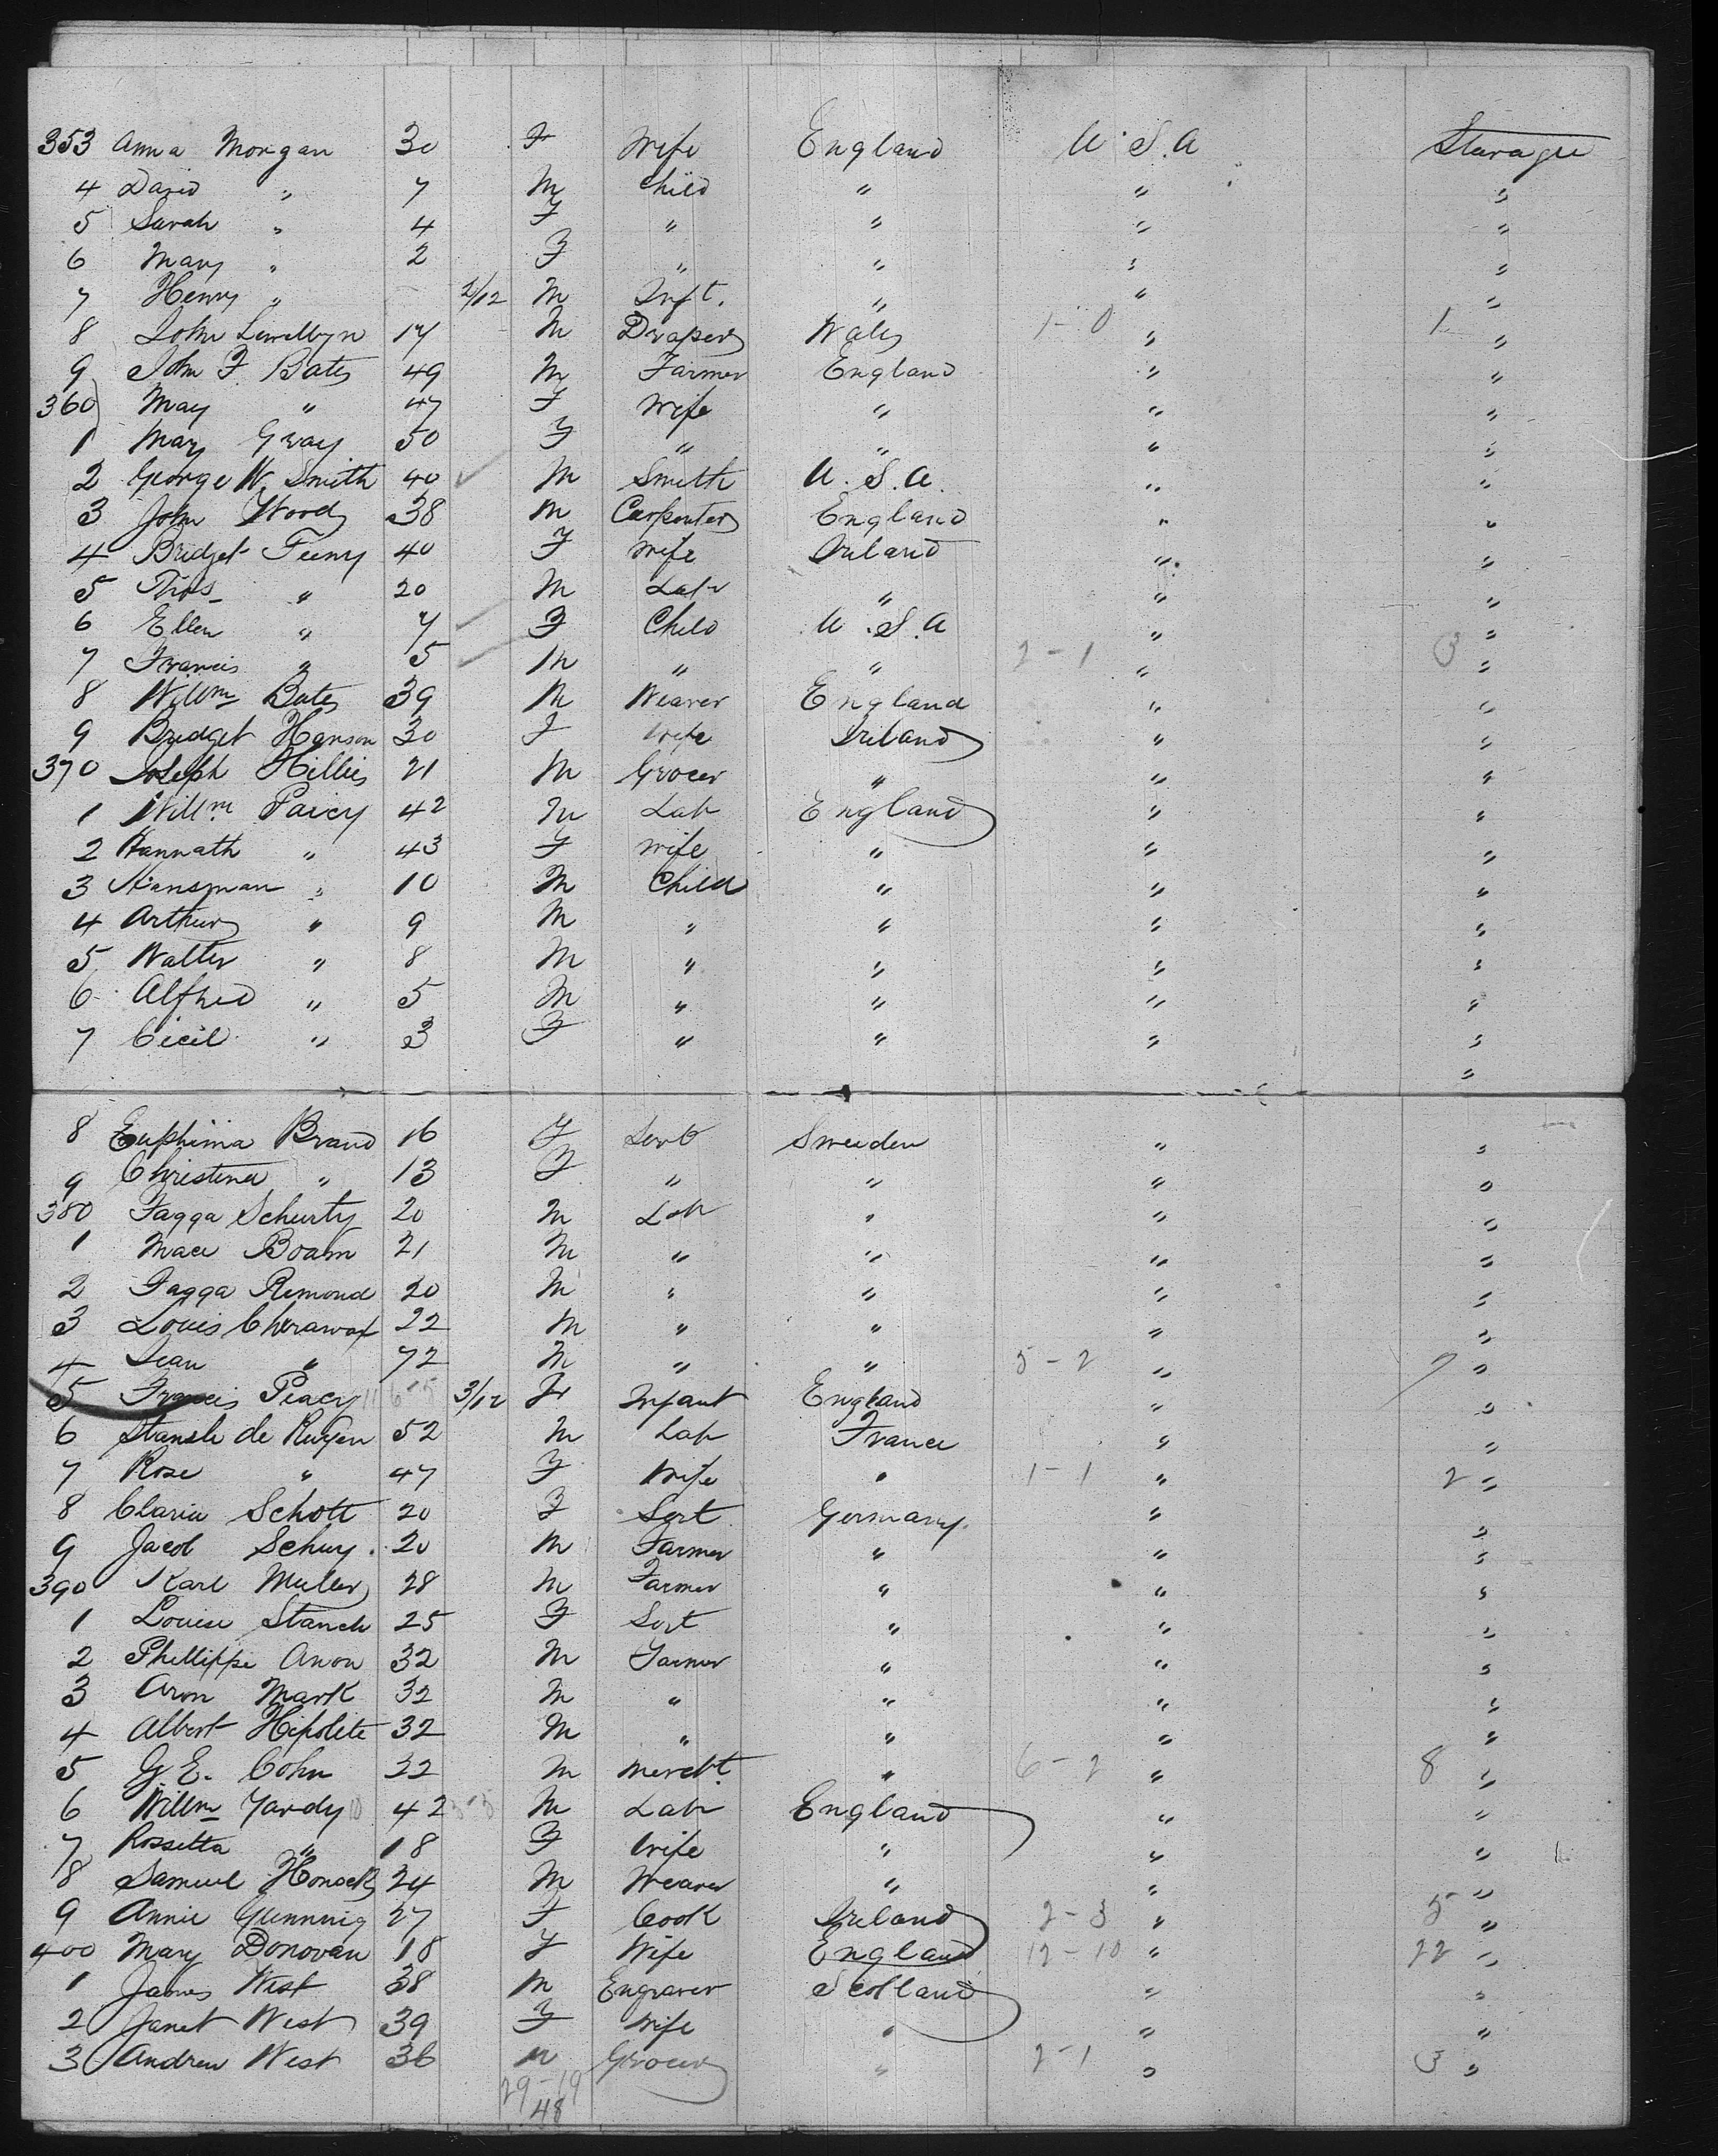 353 Anna Morgan 30 F Wife England U.S.A Starage
4 David " 7 M Child " " "
5 Sarah " 4 F " " " "
6 Mary " 2 F " " " "
7 Henry " 2/12 M Inft. " " "
8 John Lewellyn 17 M Draper Wales 1-0 " 1 "
9 John F. Bates 49 M Farmer England " "
360 May " 47 F Wife " " "
1 Mary Gray 50 F " " " "
2 George W. Smith 40 ✓ M Smith U.S.A. " "
3 John Wood 38 M Carpenter England " "
4 Bridget Feeny 40 F Wife Ireland " "
5 Thos " 20 M Labr " " "
6 Ellen " 7 ✓ F Child U.S.A " "
7 Francis " 5 ✓ M " " 2-1 " 3 "
8 Willm Bates 39 M Weaver England " "
9 Bridget Hanson 30 F Wife Ireland " "
370 Joseph Hillis 21 M Grocer " " "
1 Willm Paicy 42 M Labr England " "
2 Hannath " 43 F Wife " " "
3 Hansman " 10 M Child " " "
4 Arthur " 9 M " " " "
5 Walter " 8 M " " " "
6 Alfred " 5 M " " " "
7 Cecil " 3 F " " " "
"
8 Euphima Brand 16 F Servt Sweeden " "
9 Christina " 13 F " " " "
380 Fagga Schurty 20 M Labr " " "
1 Mace Boam 21 M " " " "
2 Fagga Remond 20 M " " " "
3 Louis 22 M " " " "
4 Jean " 72 M " " 5-2 " 7 "
5 Francis Peacy 11 6-5 3/12 F Infant England " "
6 de Ruyen 52 M Labr France " "
7 Rose " 47 F Wife " 1-1 " 2 "
8 Claria Schott 20 F Sert Germany. " "
9 Jacob Schuy. 20 M Farmer " " "
390 Karl Muller 28 M Farmer " " "
1 Louise Stanch 25 F Sert " " "
2 Phillippe Anon 32 M Farmer " " "
3 Aron Mark 32 M " " " "
4 Albert Hipolite 32 M " " " "
5 G.E. Cohn 22 M Mercht. " 6-2 " 8 "
6 Willm Yardy 10 42 5-5 M Labr England " "
7 Rossetta " 18 F Wife " " "
8 Samuel 24 M Weaver " " "
9 Annie Gunnnig 27 F Cook Ireland 2-3 " 5 "
400 Mary Donovan 18 F Wife England 12-10 " 22 "
1 James West 38 M Engraver Scotland " "
2 Janet West 39 F Wife " " "
3 Andrew West 36 M Grocer " 2-1 " 3 "
29-19
48